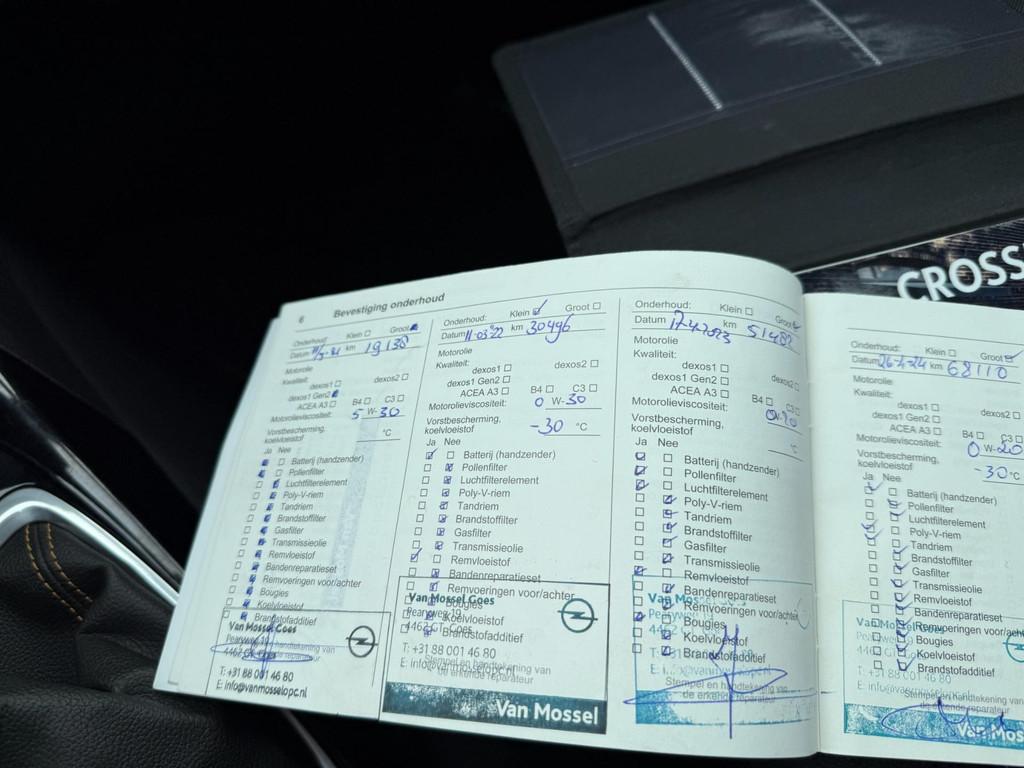 CROSS
6 Bevestiging onderhoud
Onderhoud: Klein Groot
Datum km 19138
Motorolie
Kwaliteit:
dexos1 dexos2
dexos1 Gen2
ACEA A3 B4 C3
Motorolieviscositeit: 5 W-30
Vorstbescherming,
koelvloeistof °C
Ja Nee
Batterij (handzender)
Pollenfilter
Luchtfilterelement
Poly-V-riem
Tandriem
Brandstoffilter
Gasfilter
Transmissieolie
Remvloeistof
Bandenreparatieset
Remvoeringen voor/achter
Bougies
Koelvloeistof
Brandstofadditief
Van Mossel Goes
Pearyweg 19
4462 GT Goes
T: +31 88 001 46 80
E: info@vanmosselopc.nl
Onderhoud: Klein Groot
Datum 11-03-22 km 30496
Motorolie
Kwaliteit:
dexos1 dexos2
dexos1 Gen2
ACEA A3 B4 C3
Motorolieviscositeit: 0 W-30
Vorstbescherming,
koelvloeistof -30 °C
Ja Nee
Batterij (handzender)
Pollenfilter
Luchtfilterelement
Poly-V-riem
Tandriem
Brandstoffilter
Gasfilter
Transmissieolie
Remvloeistof
Bandenreparatieset
Remvoeringen voor/achter
Bougies
Koelvloeistof
Brandstofadditief
Van Mossel Goes
Pearyweg 19
4462 GT Goes
T: +31 88 001 46 80
E: info@vanmosselopc.nl
Stempel en handtekening van
de erkende reparateur
Van Mossel
Onderhoud: Klein Groot
Datum 17-4-2023 km 51482
Motorolie
Kwaliteit:
dexos1
dexos1 Gen2 dexos2
ACEA A3 B4 C3
Motorolieviscositeit: 0W-20
Vorstbescherming,
koelvloeistof °C
Ja Nee
Batterij (handzender)
Pollenfilter
Luchtfilterelement
Poly-V-riem
Tandriem
Brandstoffilter
Gasfilter
Transmissieolie
Remvloeistof
Bandenreparatieset
Remvoeringen voor/achter
Bougies
Koelvloeistof
Brandstofadditief
Stempel en handtekening van
de erkende reparateur
Onderhoud: Klein Groot
Datum km 68110
Motorolie
Kwaliteit:
dexos1 dexos2
dexos1 Gen2
ACEA A3 B4 C3
Motorolieviscositeit: 0 W-20
Vorstbescherming,
koelvloeistof -30 °C
Ja Nee
Batterij (handzender)
Pollenfilter
Luchtfilterelement
Poly-V-riem
Tandriem
Brandstoffilter
Gasfilter
Transmissieolie
Remvloeistof
Bandenreparatieset
Remvoeringen voor/achter
Bougies
Koelvloeistof
Brandstofadditief
T: +31 88 001 46 80
Stempel en handtekening van
de erkende reparateur
Van Moss